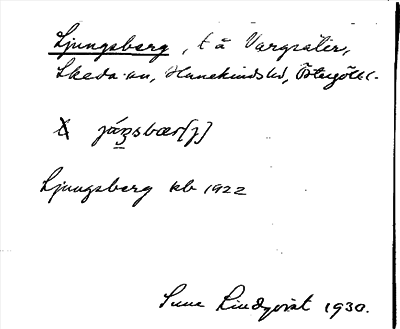 Ljungsberg, t å Vargsäter,
Skeda sn, Hanekinds hd, Östergötl.
jáŋsbær[j]
Ljungsberg kb 1922
Sune Lindqvist 1930.